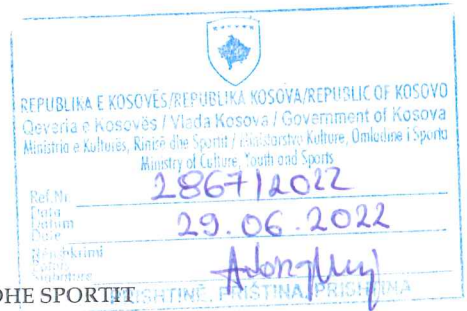 REPUBLIKA E KOSOVËS/REPUBLIKA KOSOVA/REPUBLIC OF KOSOVO
Qeveria e Kosovës / Vlada Kosova / Government of Kosova
Ministria e Kulturës, Rinisë dhe Sportit / Ministarstvo Kulture, Omladine i Sporta
Ministry of Culture, Youth and Sports
Ref.Nr. 2867/2022
Data
Datum
Date 29.06.2022
Nënshkrimi
DHE SPORTIT
PRISHTINË, PRIŠTINA, PRISHTINA